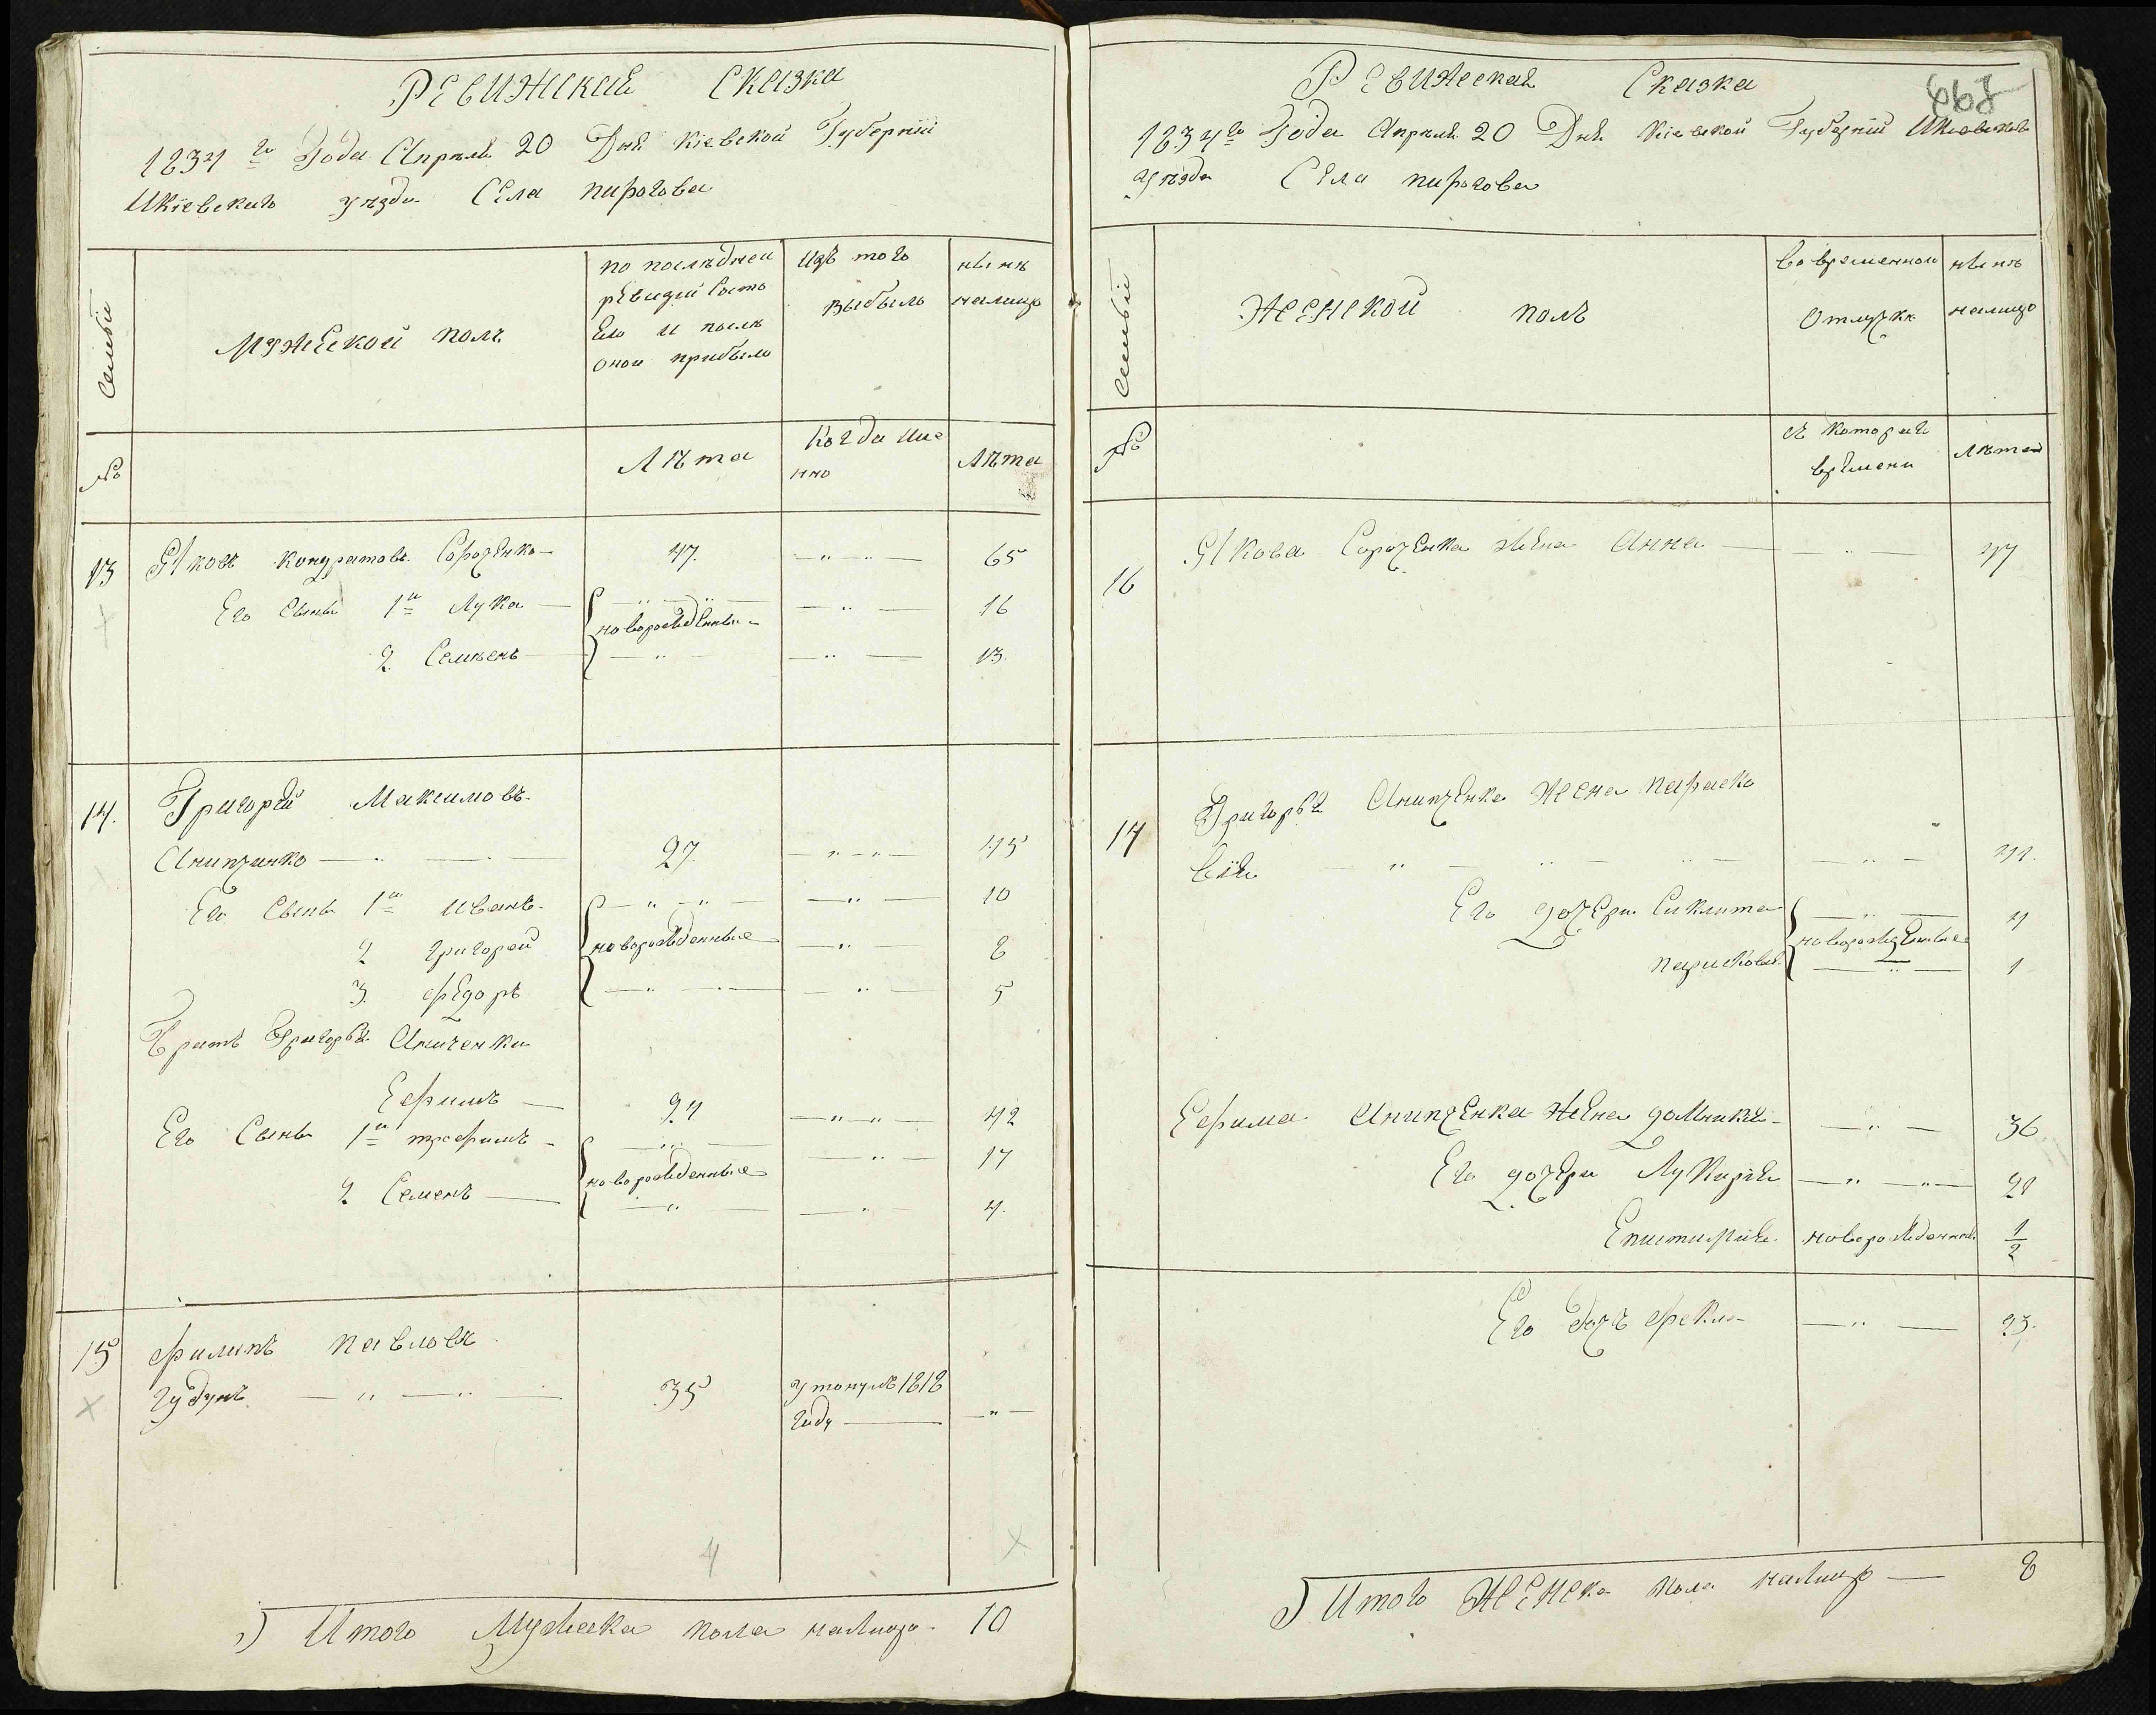 Ревижская Сказка
1834го Года Апреля 20 Дня Кіевской Губерніи
Икіевскаго уезда Села пирогова
Семьи
Мужеской полъ
по последней
ревизіи Состо
яло и после
оной прибыло
изъ того
выбыло
ныне
налицо
№
Лета
Когда име
нно
Лета
13 Яковъ Кондратовъ Сороченко 47. 65
Его Сынъ 1й Лука новорожденные 16
2 Семенъ 13.
14. Григорій Максимовъ
Анипчинко 27 45
Его Сынъ 1й иванъ 10
2 григорей новорожденные 8
3. федоръ 5
Братъ Григорья Аниченка
Ефимъ 24 42
Его Сынъ 1й трофимъ 17
2 Семенъ новорожденные 4.
15 филипъ павловъ
гудимъ 35 утонулъ 1818
году
Итого Мужеска пола налицо 10
668
Ревижеская Сказка
1834го Года Апреля 20 Дня Кіевской Губерніи Икіевскаго
уезда Села пирогова
Семьи
Женской полъ
во временной
Отлучке
ныне
налицо
№
съ котораго
времени
Лета
16 Якова Сороченка жена Анна 47
17 Григорья Анипченка жена параско
вія 41.
Его дочери Сиклита 4
парасковья новорожденные 1
Ефима Анипченка жена домникія 36
Его дочери Лукирія 21
Епистимія новорожденная 1/2
Его дочь фекла 23.
Итого Женска пола налицо 8